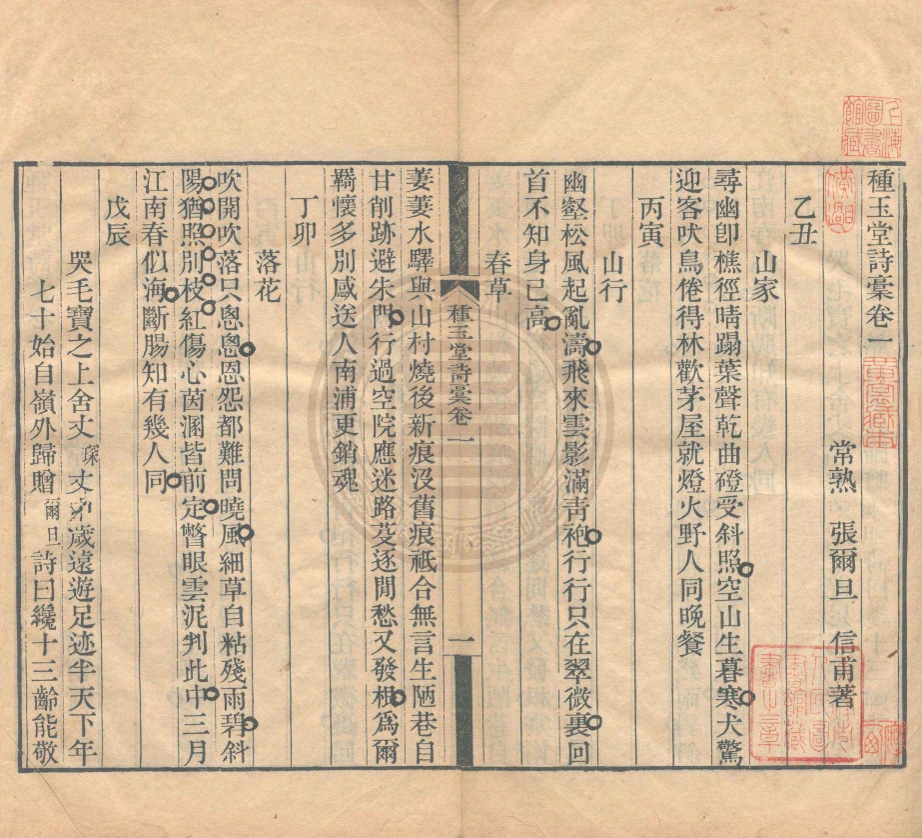 種玉堂詩稾卷一
常熟 張爾旦 信甫著
乙丑
山家
尋幽卽樵徑晴蹋葉聲乾曲磴受斜照空山生暮寒犬驚
迎客吠鳥倦得林歡茅屋就燈火野人同晚餐
丙寅
山行
幽壑松風起亂濤飛來雲影滿靑袍行行只在翠微裏回
首不知身已高
春草
種玉堂詩稾卷一
一
萋萋水驛與山村燒後新痕沒舊痕祗合無言生陋巷自
甘削跡避朱門行過空院應迷路芟逐閒愁又發根爲爾
羈懷多別感送人南浦更銷魂
丁卯
落花
吹開吹落只悤悤恩怨都難問曉風細草自粘殘雨碧斜
陽猶照別枝紅傷心茵溷皆前定瞥眼雲泥判此中三月
江南春似海斷腸知有幾人同
戊辰
哭毛寶之上舍丈琛丈 歲遠遊足迹半天下年
七十始自嶺外歸贈爾旦詩曰纔十三齡能敬